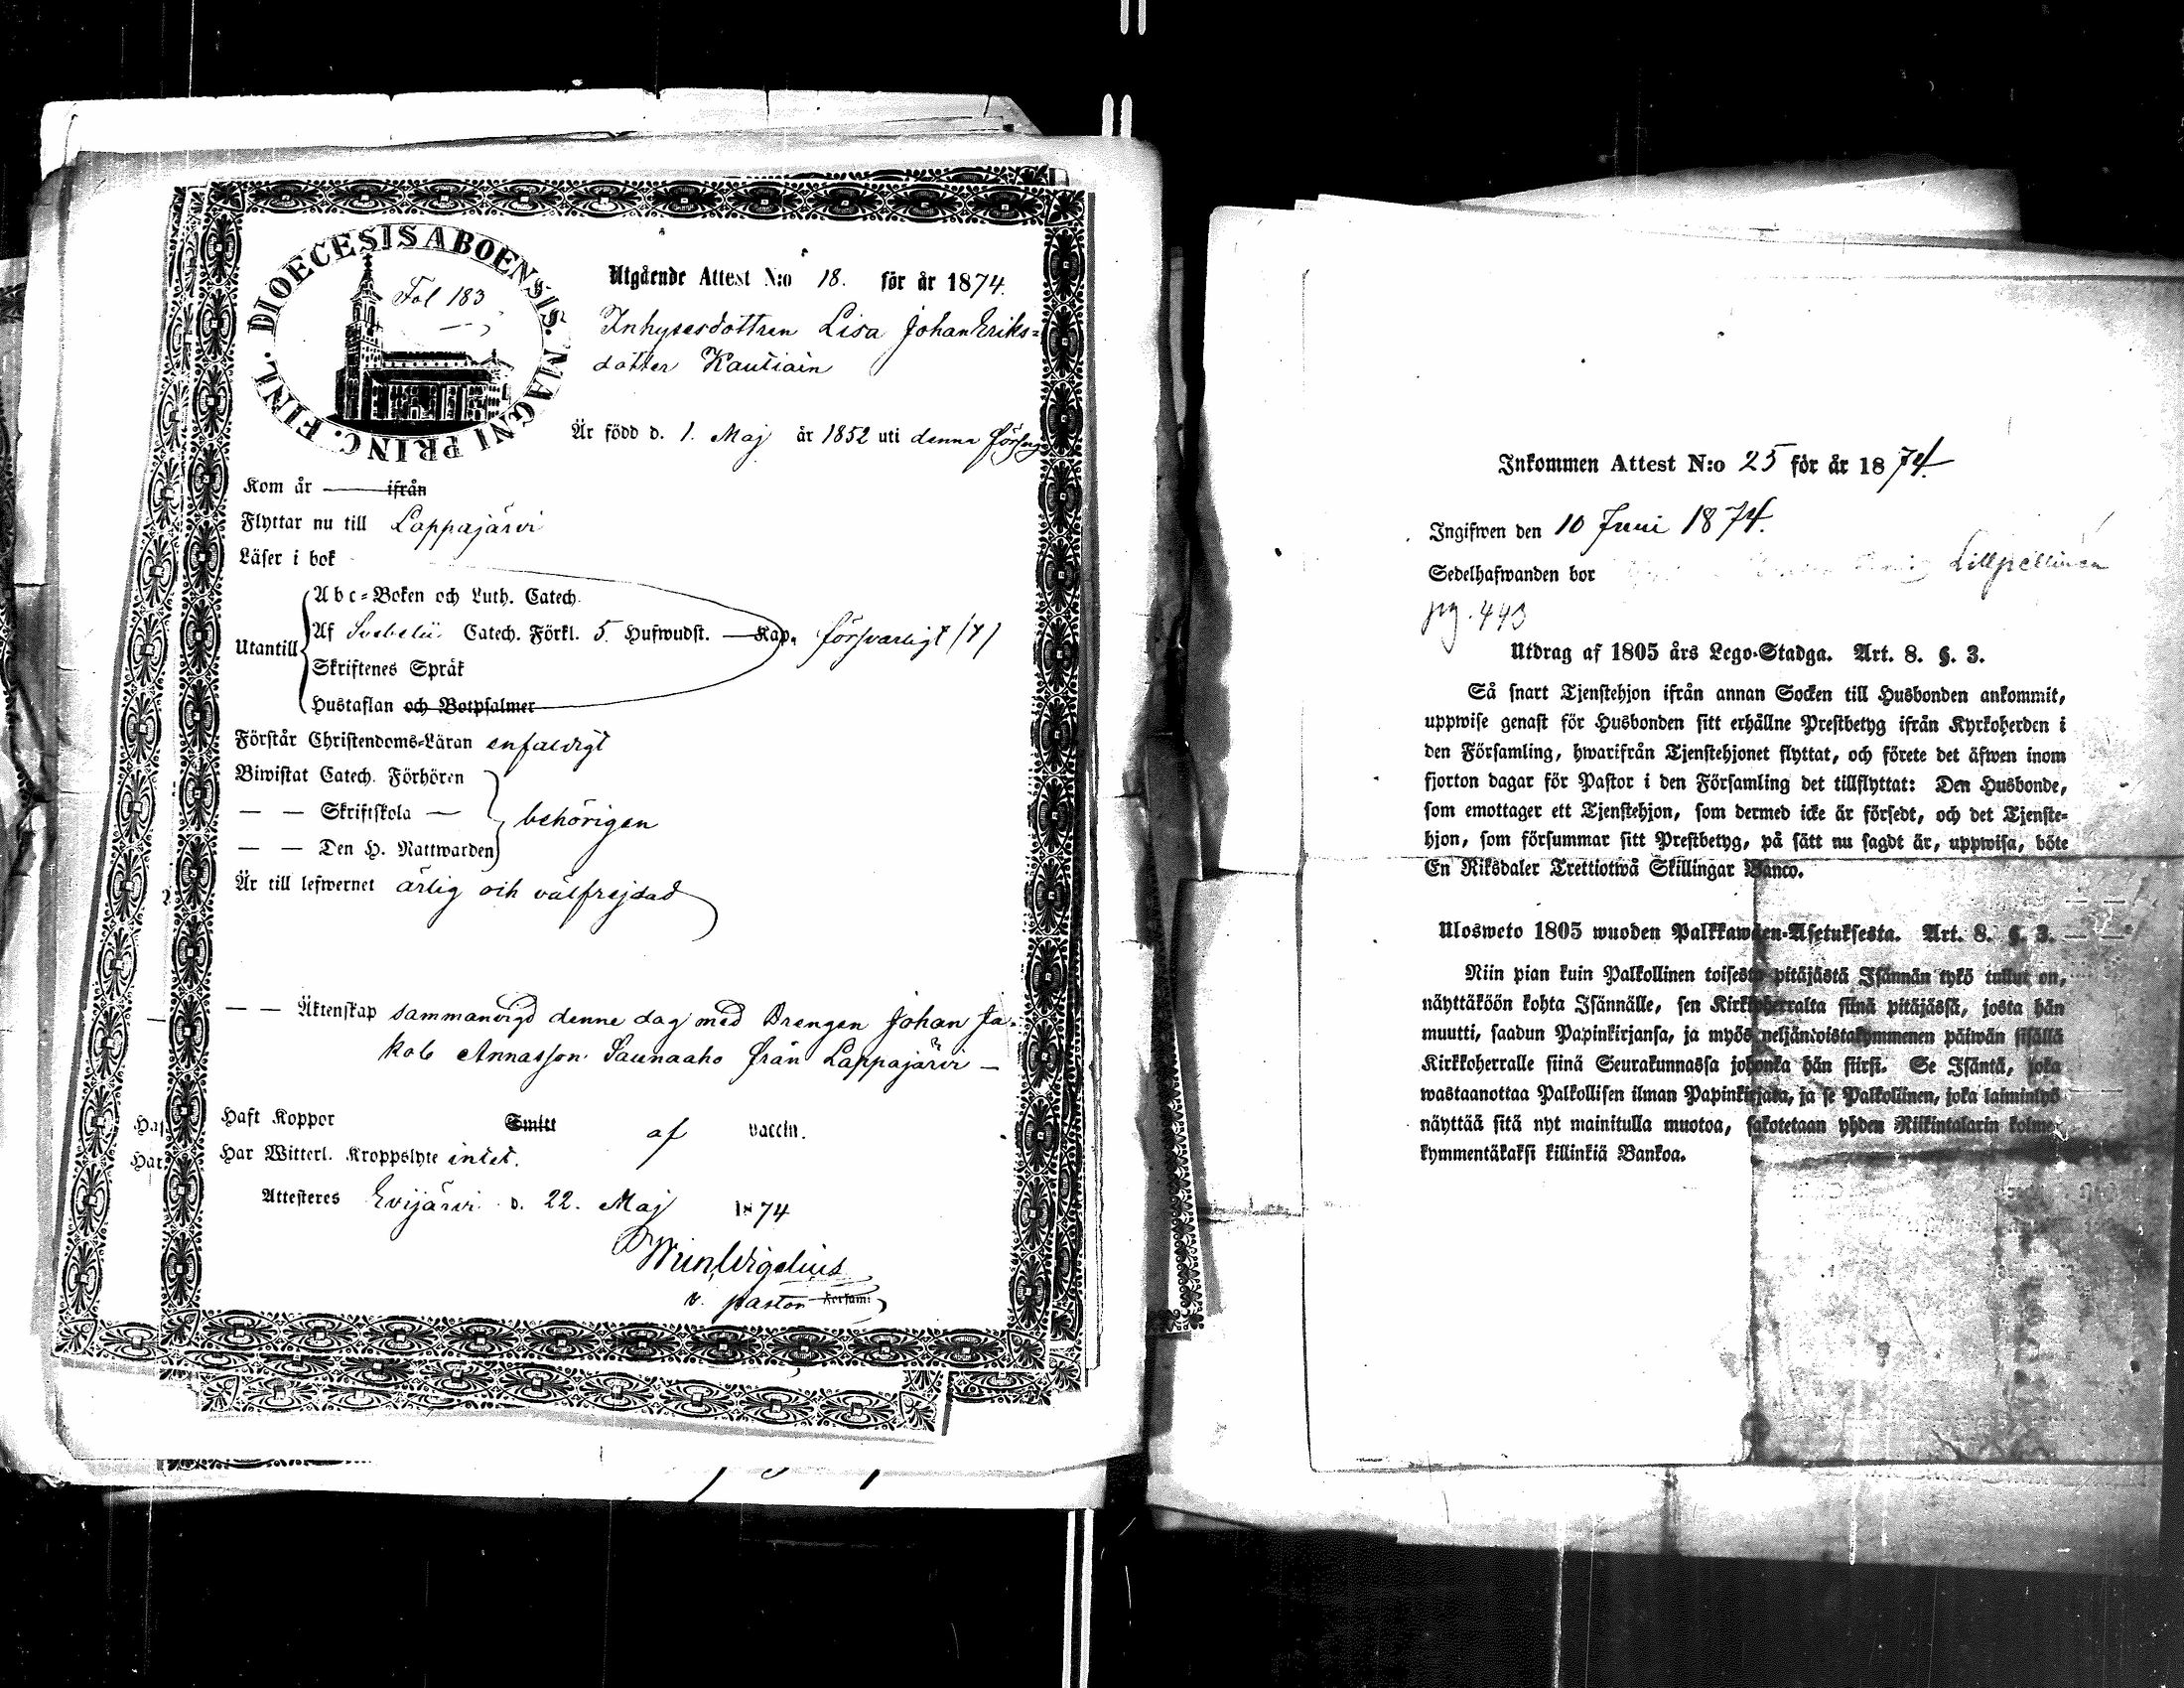 DIOECESIS ABOENSIS. MAGNI PRINC. FINL.
Fol 183
Utgående Attest N:o 18. för år 1874.
Inhysesdottren Lisa JohanEriks=
dotter Kautiain
Är född d. 1. Maj år 1852 uti denna förs
Kom år — ifrån
Flyttar nu till Lappajärvi
Läser i bok
Abc=Boken och Luth. Catech.
Utantill Af Svebelii Catech. Förkl. 5. Hufwudst. — Kap. försvarligt /7/
Skriftenes Språk
Hustaflan och Botpsalmer
Förstår Christendoms=Läran enfaldigt
Biwistat Catech. Förhören
— — Skriftskola —
behörigen
— — Den H. Nattwarden
Är till lefwernet ärlig och välfrejdad
— — Äktenskap sammanvigd denne dag med Drengen Johan Ja=
kob Annasson Saunaaho från Lappajärvi —
Haft Koppor Smitt af vaccin.
Har Witterl. Kroppslyte intet.
Attesteras Evijärvi d. 22. Maj 1874
v. pastor Församl.
Haf
Har
Inkommen Attest N:o 25 för år 1874.
Ingifwen den 10 Juni 1874.
Sedelhafwanden bor Lillpellinen
pg. 443
Utdrag af 1805 års Lego-Stadga. Art. 8. §. 3.
Så snart Tjenstehjon ifrån annan Socken till Husbonden ankommit,
uppwise genast för Husbonden sitt erhållne Prestbetyg ifrån Kyrkoherden i
den Församling, hwarifrån Tjenstehjonet flyttat, och förete det äfwen inom
fjorton dagar för Pastor i den Församling det tillflyttat: Den Husbonde,
som emottager ett Tjenstehjon, som dermed icke är försedt, och det Tjenste-
hjon, som försummar sitt Prestbetyg, på sätt nu sagdt är, uppwisa, böte
En Riksdaler Trettiotwå Skillingar Banco.
Ulosweto 1805 wuoden Palkkawäen-Asetuksesta. Art. 8. §. 3.
Niin pian kuin Palkollinen toisesta pitäjästä Isännän tykö tullut on,
näyttäköön kohta Isännälle, sen Kirkkoherralta siinä pitäjässä, josta hän
muutti, saadun Papinkirjansa, ja myös neljäntoistakymmenen päiwän sisällä
Kirkkoherralle siinä Seurakunnassa johonka hän siirsi. Se Isäntä, joka
wastaanottaa Palkollisen ilman Papinkirjata, ja se Palkollinen, joka laiminlyö
näyttää sitä nyt mainitulla muotoa, sakotetaan yhden Riikintalarin kolme-
kymmentäkaksi killinkiä Bankoa.